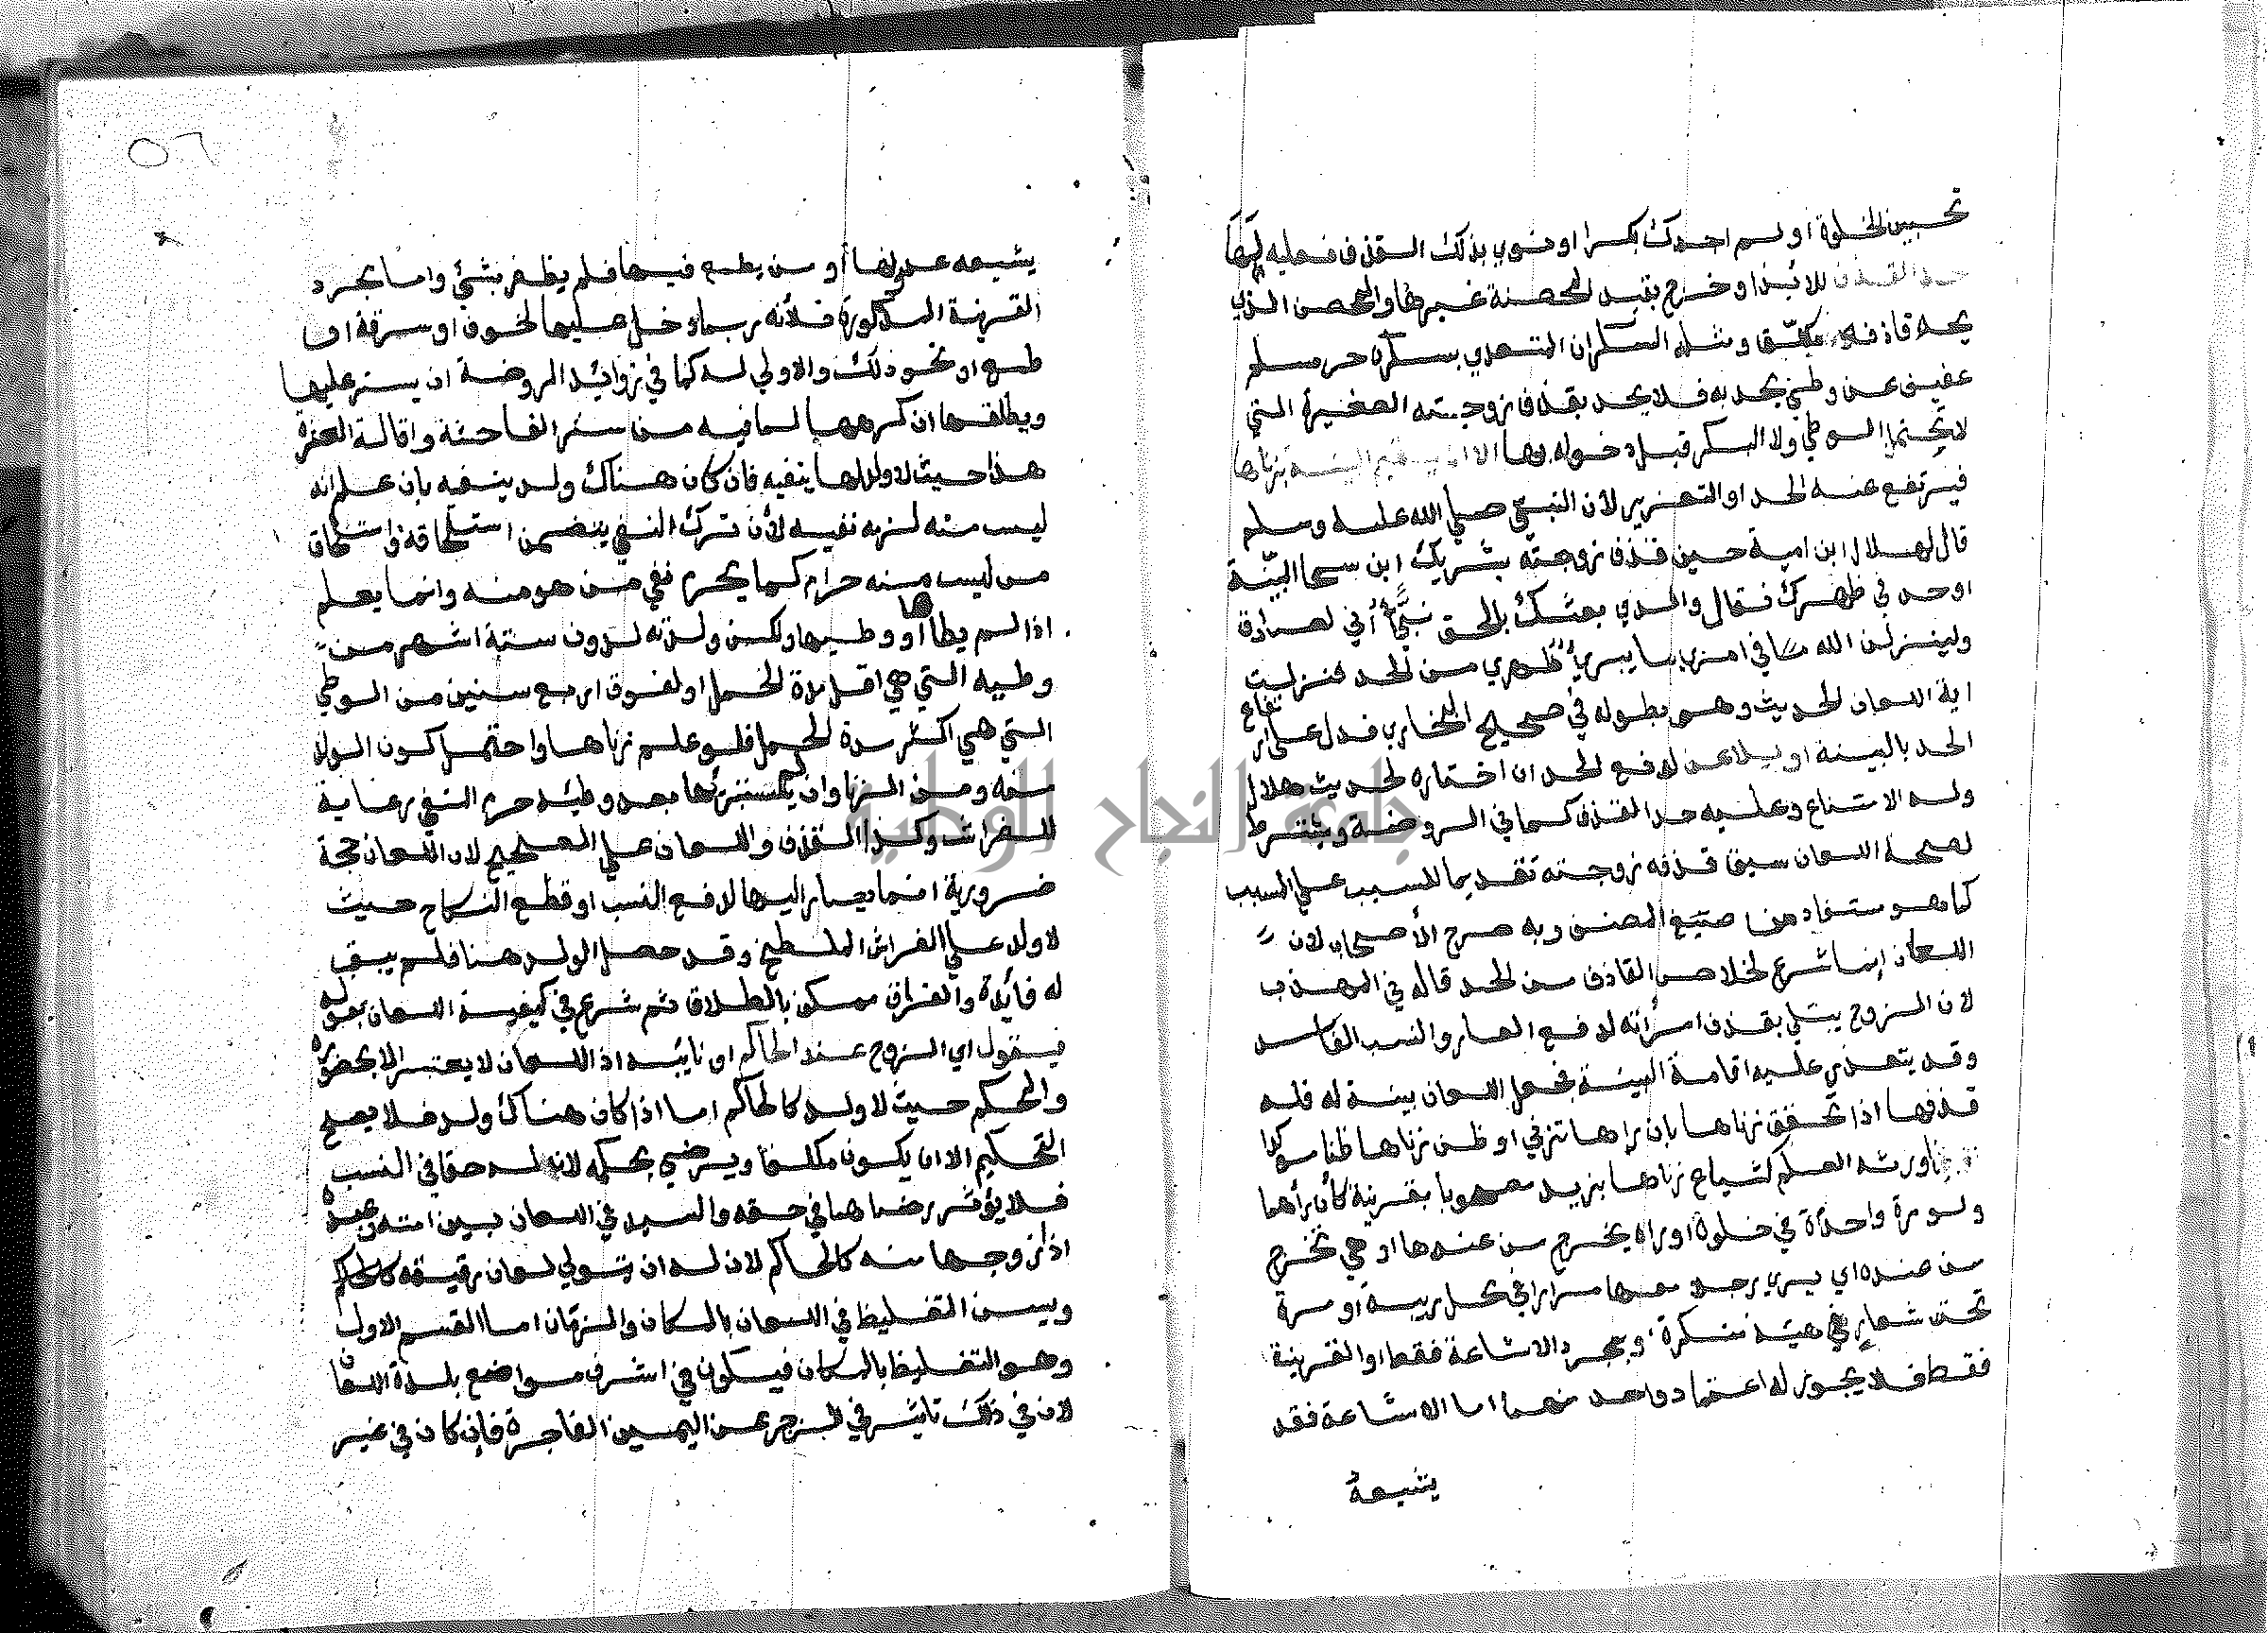 تحبين الخلوة او لم اجدك بكرا او نوي بذلك القذف فعليه لها
حد القذف للايذا وخرج بقيد المحصنة غيرها والمحصن الذي
يحد قاذفه مكلف ومثله السكران المتعدي بسكره حر مسلم
عفيف عن وطئ يحد به فلا يحد بقذف زوجته الصغيرة التي
لا تحتمل الوطئ ولا البكر قبل دخوله بها الا ان يقيم البينة بزناها
فيرتفع عنه الحد او التعزير لان النبي صلي الله عليه وسلم
قال لهلال ابن امية حين قذف زوجته بشريك ابن سحما البينة
او حد في ظهرك فقال والذي بعثك بالحق نبيا أني لصادق
ولينزلن الله في امري ما يبرئ ظهري من الحد فنزلت
اية اللعان الحديث وهو بطوله في صحيح البخاري فدل علي ارتفاع
الحد بالبينة او يلاعن لدفع الحد ان اختاره لحديث هلال
وله الامتناع وعليه حد القذف كما في الروضة ويشترط
لصحة اللعان سبق قذفه زوجته تقديما للسبب علي المسبب
كما هو مستفاد من صنيع المصنف وبه صرح الأصحاب لان
اللعان إنما شرع لخلاص القاذف من الحد قاله في المهذب
لان الزوج يبتلي بقذف امرأته لدفع العار والنسب الفاسد
وقد يتعذر عليه اقامة البينة فجعل اللعان بينة له فله
قذفها اذا تحقق زناها بان رآها تزني او ظن زناها ظنا موكدا
اورثه العلم كشياع زناها بزيد مصحوبا بقرينة كأن رأهما
ولو مرة واحدة في خلوة او راه يخرج من عندها او هي تخرج
من عنده اي يري رجلا معها مرارا في محل ريبة او مرة
تحت شعار في هيئة منكرة وبمجرد الاشاعة فقط او القرينة
فقط فلا يجوز له اعتماد واحد منهما اما الاشاعة فقد
يشيعه
٥٦
يشيعه عدولها أو من يطمع فيها فلم يظفر بشئ واما مجرد
القرينة المذكورة فلأنه ربما دخل عليها لخوف او سرقة او
طمع او نحو ذلك والاولي له كما في زوائد الروضة ان يستر عليها
ويطلقها ان كرهها لما فيه من ستر الفاحشة واقالة العثرة
هذا حيث لا ولد لها ينفيه فان كان هناك ولد ينفيه بان علم انه
ليس منه لزمه نفيه لأن ترك النفي يتضمن استلحاقه واستلحاق
من ليس منه حرام كما يحرم نفي من هو منه وانما يعلم
اذا لم يطاها او وطيها ولكن ولدته لدون ستة اشهر من
وطيه التي هي اقل مدة الحمل او لفوق اربع سنين من الوطئ
التي هي اكثر مدة الحمل فلو علم زناها واحتمل كون الولد
منه ومن الزنا وان لم يستبرئها بعد وطئه حرم النفي رعاية
للفراش وكذا القذف واللعان علي الصحيح لان اللعان حجة
ضرورية انما يصار اليها لدفع النسب او قطع النكاح حيث
لا ولد علي الفراش الملطخ وقد حصل الولد هنا فلم يبق
له فائدة والفراق ممكن بالطلاق ثم شرع في كيفية اللعان بقوله
فيقول اي الزوج عند الحاكم او نايبه اذ اللعان لا يعتبر الا بحضوره
والمحكم حيث لا ولد كالحاكم اما اذا كان هناك ولد فلا يصح
التحكيم الا ان يكون مكلفا ويرضي بحكمه لانه له حقا في النسب
فلا يؤثر رضاهما في حقه والسيد في اللعان بين امته وعبده
اذا زوجها منه كالحاكم لان له ان يتولي لعان رقيقه كالحاكم
ويسن التغليظ في اللعان بالمكان والزمان اما القسم الاول
وهو التغليظ بالمكان فيكون في اشرف مواضع بلدة اللعان
لان في ذلك تاثير في الزجر عن اليمين الفاجرة فان كان في غير
جامعة النجاح الوطنية